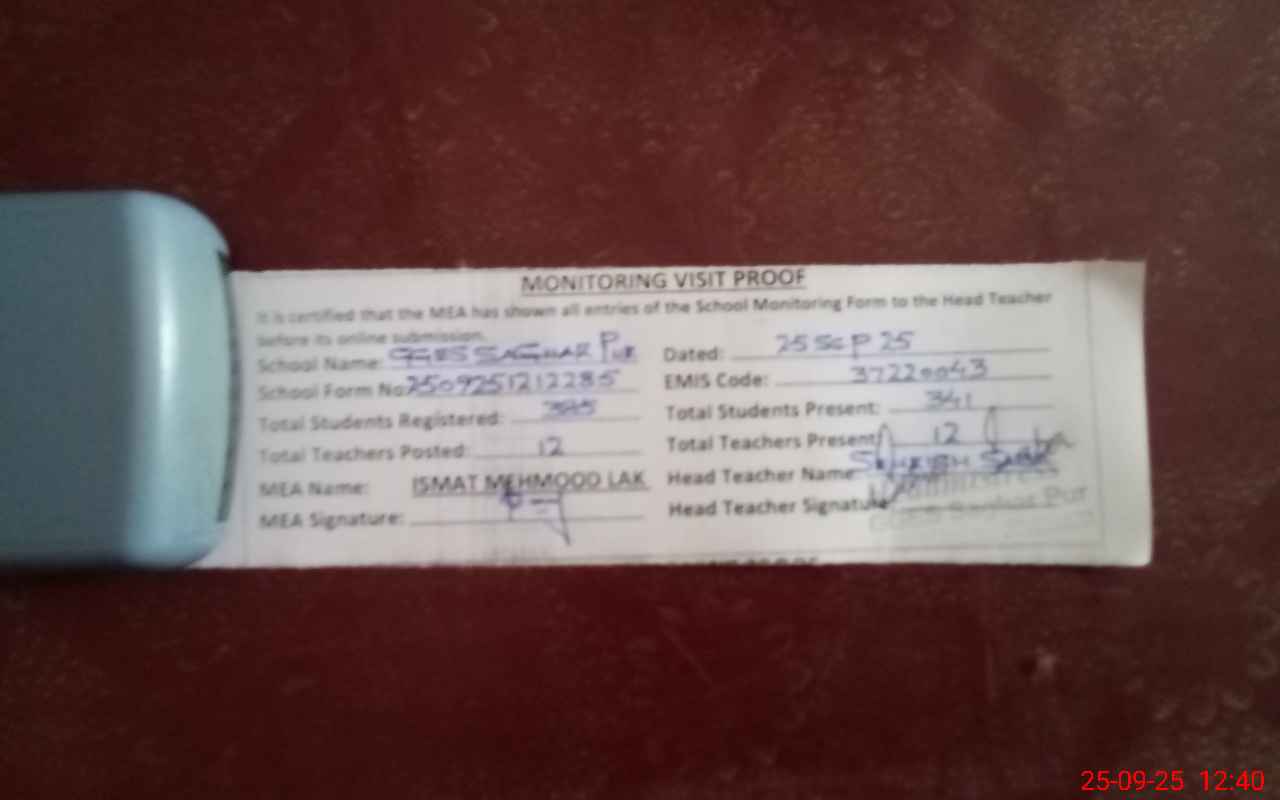 MONITORING VISIT PROOF
It is certified that the MEA has shown all entries of the School Monitoring Form to the Head Teacher
before its online submission.
School Name: Pur
Dated: 25 Sep 25
School Form No. 2509251212285
EMIS Code: 37220043
Total Students Registered:
Total Students Present: 341
Total Teachers Posted: 12
Total Teachers Present 12
MEA Name: ISMAT MEHMOOD LAK
Head Teacher Name
MEA Signature:
Head Teacher Signature
Pur
25-09-25 12:40